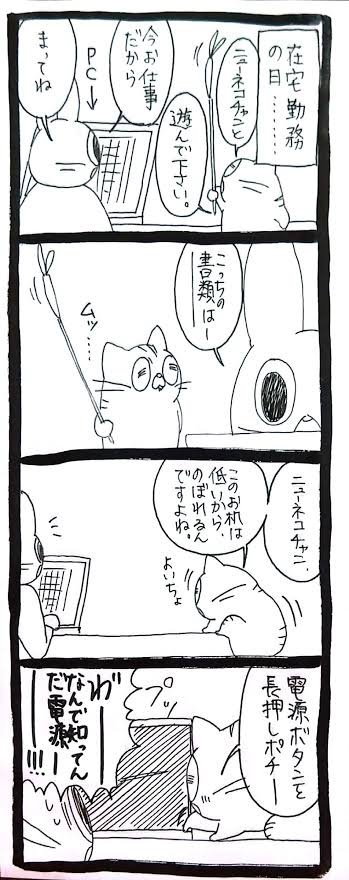 在宅勤務
の日………
ニューネコチャンと
遊んで下さい。
今お仕事
だから
PC→
まってね
こっちの
書類はー
ムッ……
ニューネコチャン、
このお机は
低いから、
のぼれるん
ですよね。
よいしょ
電源ボタンを
長押しポチー
プッ
ヴ
なんで知ってん
だ電源ー
!!!